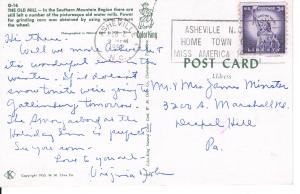 D-14
THE OLD MILL — In the Southern Mountain Region there are
still left a number of the picturesque old water mills. Power
for grinding corn was obtained by using water to turn
the wheel.
ASHEVILLE N.
HOME TOWN
MISS AMERICA
POST CARD
Address
Hi there.
Well we made Asheville &
it's wonderful in the
winter. If it doesn't
snow tonite we're going to
Gatlinburg tomorrow.
The at the
Holiday Inn is perfect.
See you soon.
Love to you all.
Virginia & John
Mr & Mrs James Minster
3200 A. Marshall Rd.
Drexel Hill
Pa.
K